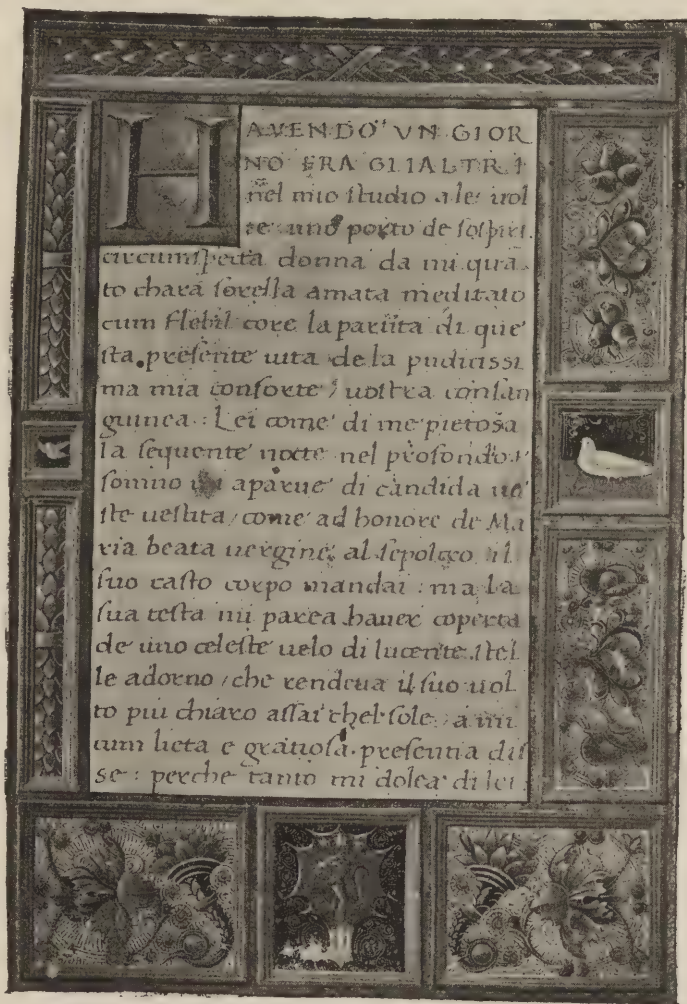 HAVENDO VN GIOR
NO FRA GLIALTRI
nel mio studio a le uol
te uno porto de sospiri
circumspecta donna da mi qua
to chara sorella amata meditato
cum flebil core la partita di que
sta presente uita de la pudicissi
ma mia consorte / uostra consan
guinea : Lei come di me pietosa
la sequente nocte nel profondo
somno aparue di candida ue
ste uestita / come ad honore de Ma
ria beata uergine al sepolcro il
suo casto corpo mandai : ma la
sua testa mi parea hauer coperta
de uno celeste uelo di lucente stel
le adorno / che rendeua il suo uol
to piu chiaro assai chel sole : a mi
cum lieta e gratiosa presentia dis
se : perche tanto mi dolea di lei